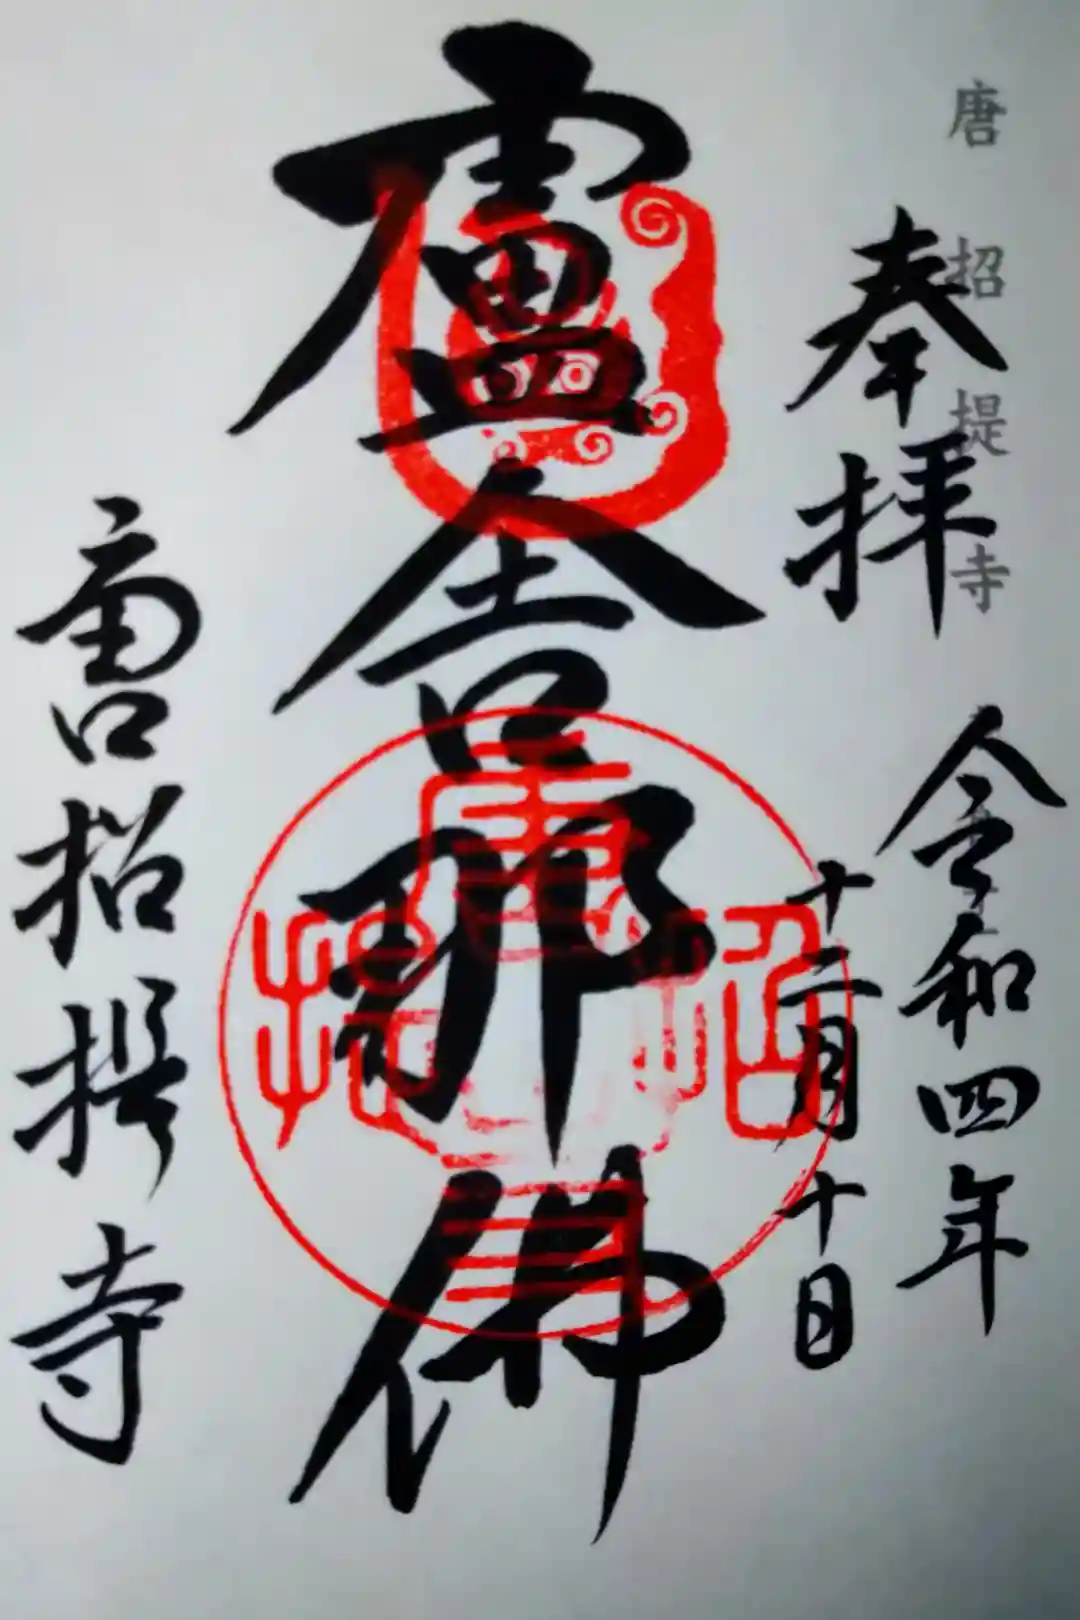 唐招提寺
奉拝
令和四年
十二月十日
盧舎那佛
唐招提寺
唐招提寺